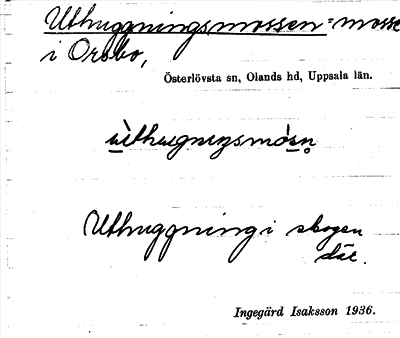 Uthuggningsmossen = mosse
i Orsbo,
Österlövsta sn, Olands hd, Uppsala län.
ùthugnıŋsmòsn̥
Uthuggning i skogen
där.
Ingegärd Isaksson 1936.